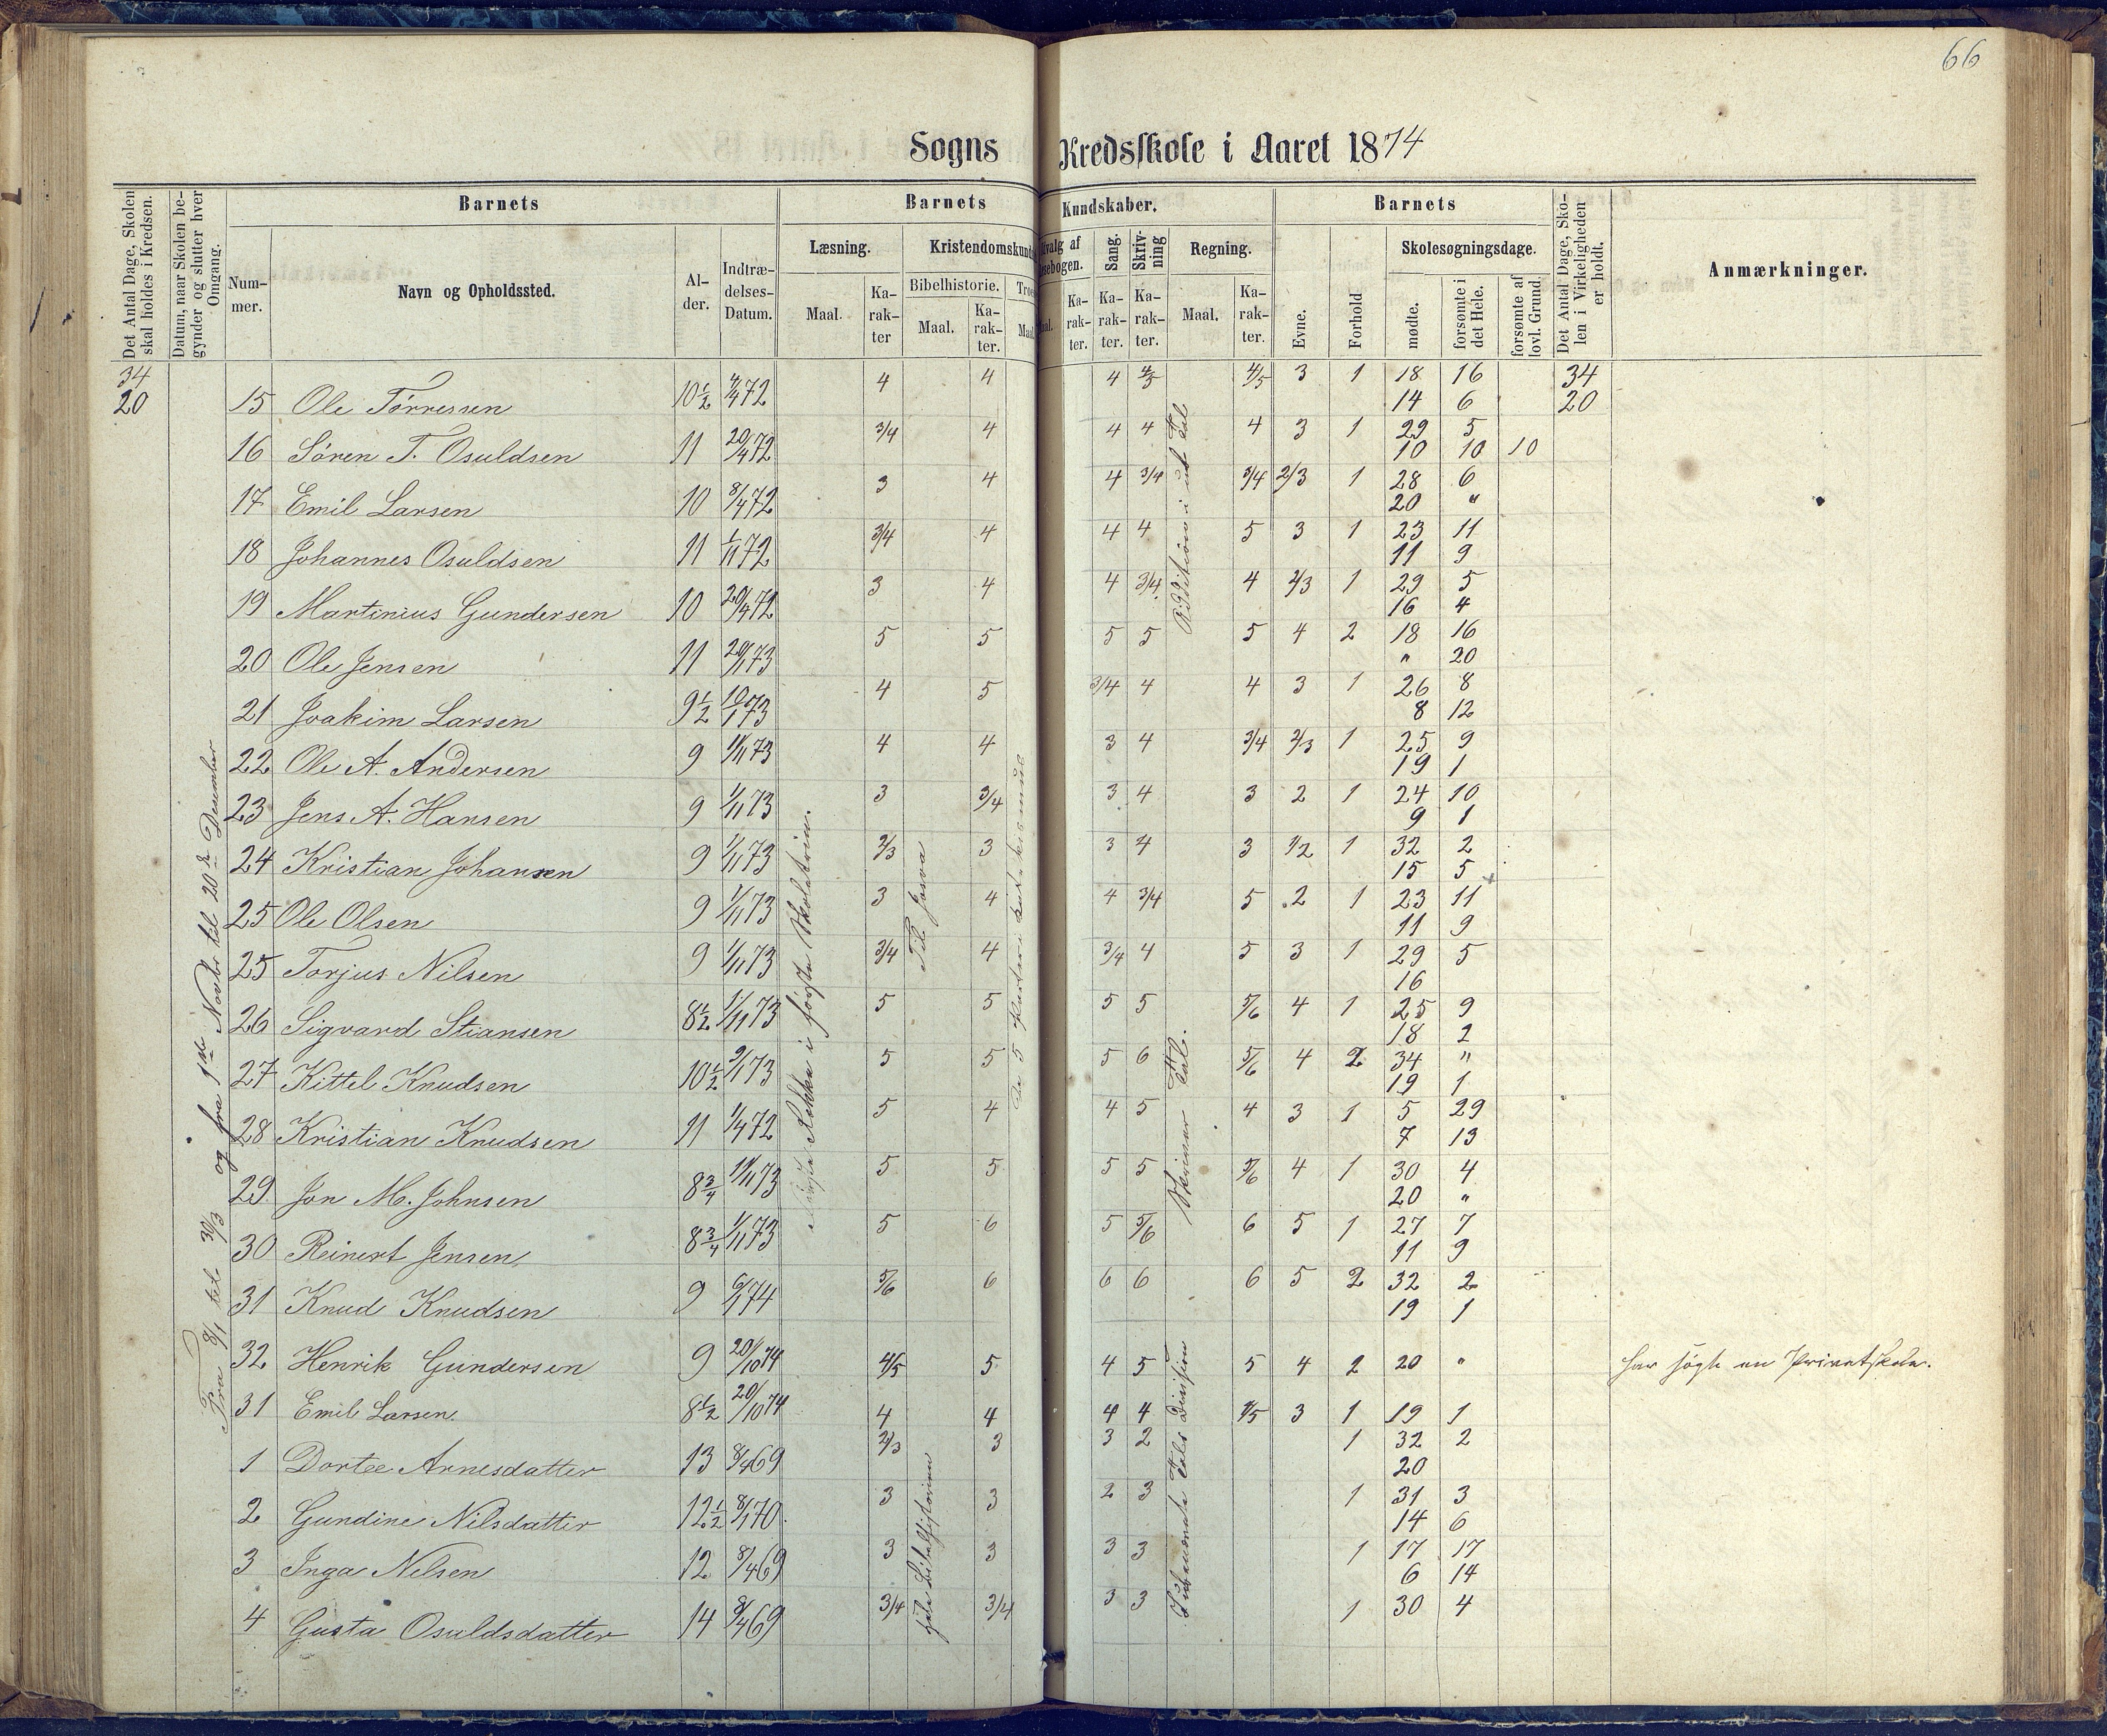 66
Sogns Kredsskole i Aaret 1874
Det Antal Dage, Skolen skal holdes i Kredsen.
Datum, naar Skolen begynder og slutter hver Omgang.
Barnets
Barnets
Kundskaber.
Barnets
Det Antal Dage, Skolen i Virkeligheden er holdt.
Anmærkninger.
Nummer.
Navn og Opholdssted.
Alder.
Indtrædelses-Datum.
Læsning.
Kristendomskund
Sang.
Skrivning
Regning.
Evne.
Forhold
Skolesøgningsdage.
Maal.
Karakter
Bibelhistorie.
Maal.
Karakter.
Karakter.
Karakter.
Karakter.
Maal.
Karakter.
mødte.
forsømte i det Hele.
forsømte af lovl. Grund.
34 4 4 4 4/5 4/5 3 1 18 16 34
20 15 Ole Tørressen 10½ 4/4 72 14 6 20
3/4 4 4 4 4 3 1 29 5
16 Søren T. Osuldsen 11 20/4 72 10 10 10
3 4 4 3/4 3/4 2/3 1 28 6
17 Emil Larsen 10 8/4 72 20 "
3/4 4 4 4 5 3 1 23 11
18 Johannes Osuldsen 11 1/11 72 11 9
3 4 4 3/4 4 2/3 1 29 5
19 Martinius Gundersen 10 20/4 72 16 4
5 5 5 5 5 4 2 18 16
20 Ole Jensen 11 20/1 73 " 20
4 5 3/4 4 4 3 1 26 8
21 Joakim Larsen 9½ 10/1 73 8 12
4 4 3 4 3/4 2/3 1 25 9
22 Ole A. Andersen 9 1/11 73 19 1
3 3/4 3 4 3 2 1 24 10
23 Jens A. Hansen 9 1/11 73 9 1
2/3 3 3 4 3 1/2 1 32 2
24 Kristian Johansen 9 1/11 73 15 5
3 4 4 3/4 5 2 1 23 11
25 Ole Olsen 9 1/11 73 11 9
3/4 4 3/4 4 5 3 1 29 5
25 Torjus Nilsen 9 1/11 73 16
5 5 5 5 5/6 4 1 25 9
26 Sigvard Stiansen 8½ 1/11 73 18 2
5 5 5 6 5/6 4 2 34 "
27 Kittel Knudsen 10½ 9/1 73 19 1
5 4 4 5 4 3 1 5 29
28 Kristian Knudsen 11 1/4 72 7 13
5 5 5 5 5/6 4 1 30 4
29 Jon M. Johnsen 8¾ 11/11 73 20 "
5 6 5 5/6 6 5 1 27 7
30 Reinert Jensen 8¾ 1/11 73 11 9
5/6 6 6 6 6 5 2 32 2
31 Knud Knudsen 9 6/1 74 19 1
32 Henrik Gundersen 9 20/10 74 4/5 5 4 5 5 4 2 20 " har søgt en Privatskole.
31 Emil Larsen 8½ 20/10 74 4 4 4 4 4/5 3 1 19 1
2/3 3 3 2 1 32 2
1 Dortee Arnesdatter 13 8/4 69 20
3 3 2 3 1 31 3
2 Gundine Nilsdatter 12½ 8/1 70 14 6
3 3 3 3 1 17 17
3 Inga Nilsen 12 8/4 69 6 14
3/4 3/4 3 3 1 30 4
4 Gusta Osuldsdatter 14 8/4 69
Fra 8/1 til 30/3 og fra 1ste Novbr til 20de Desember
Rekke i første Skoletrin.
Til Josva
De 5 Parter i Katekismus
Addition i ub Tal
Skriver Tal.
hele Bibelhistorien
Ubenævnte Tals Division